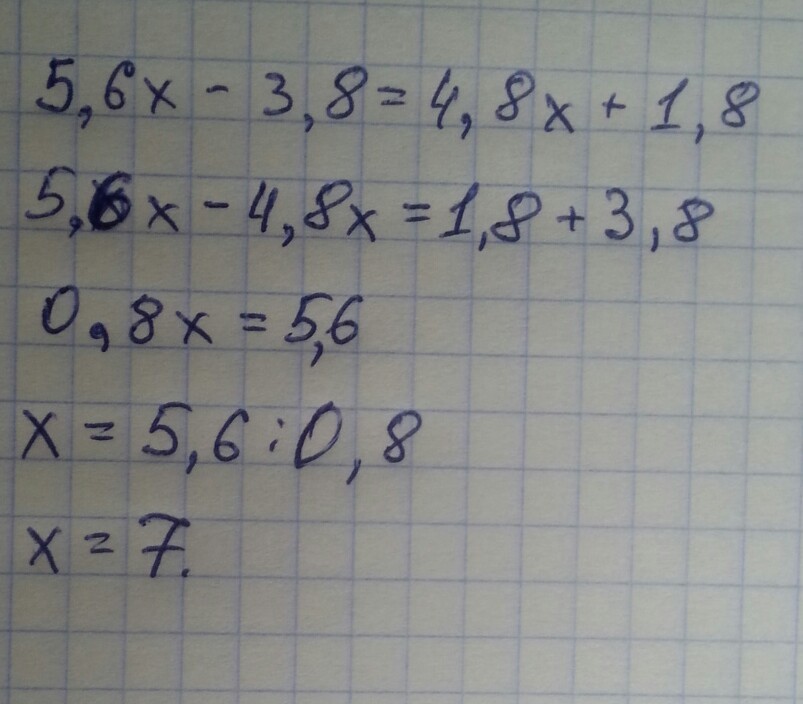 5,6x - 3,8 = 4,8x + 1,8
5,6x - 4,8x = 1,8 + 3,8
0,8x = 5,6
x = 5,6 : 0,8
x = 7.